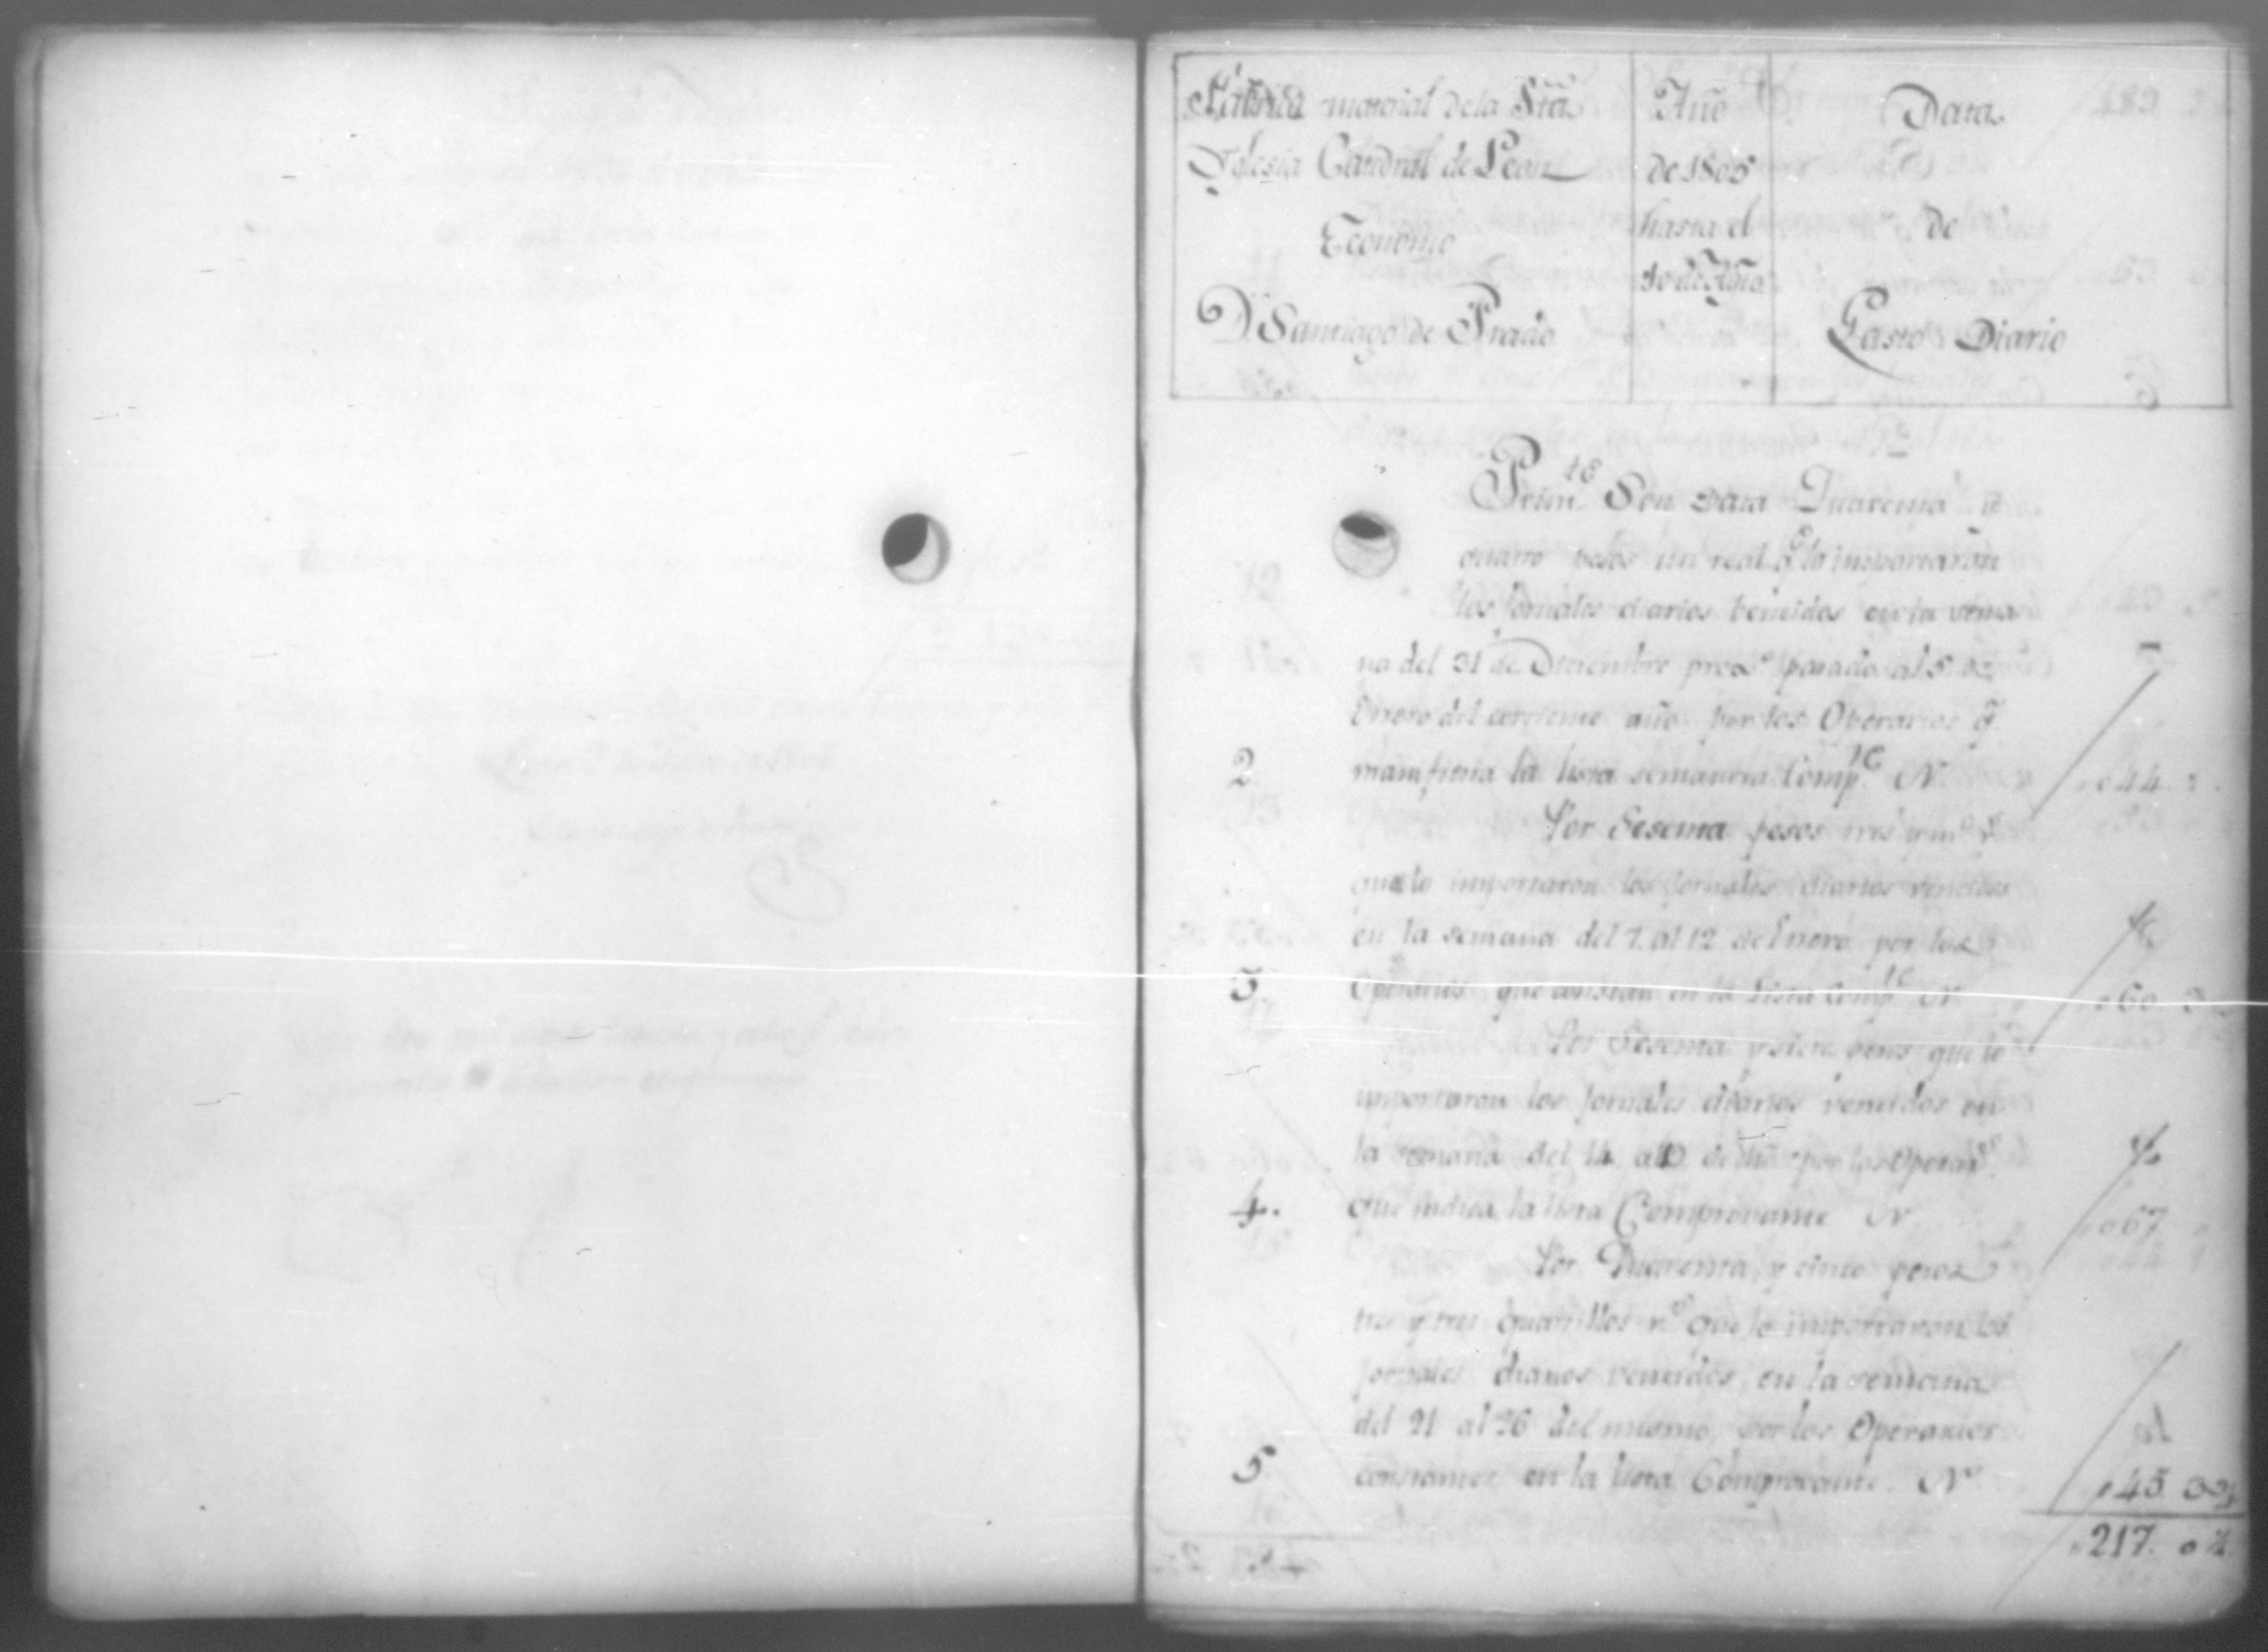 Fabrica material de la Sta
Yglesia Catedral de Leon
Economo
Dn Santiago de Prado
Año
de 1805
hasta el
Data
de
Gasto Diario
Primte Son Data Quarenta y
quatro pesos un real qe la importaron
los jornales diarios vencidos en la sema
na del 31 de Diciembre proxo pasado al 5 de
Enero del corriente año por los Operarios q
2 manifiesta la lista semanera Compte N 44 1
Por Sesenta pesos tres y md rs
que lo importaron los jornales diarios vencidos
en la semana del 7 al 12 de Enero por los
3 Operarios que constan en la lista Compte N 60 3
Por Sesenta y siete pesos que lo
importaron los jornales diarios vencidos en
la semana del 14 al 19 de por los Operars
4. que indica la lista Comprovante N 067
Por Quarenta y cinco pesos
tres y tres quartillos rs que lo importaron los
jornales diarios vencidos en la semana
del 21 al 26 del mismo por los Operarios
5 constantes en la lista Comprovante N 45. 3¾
217. 0¼